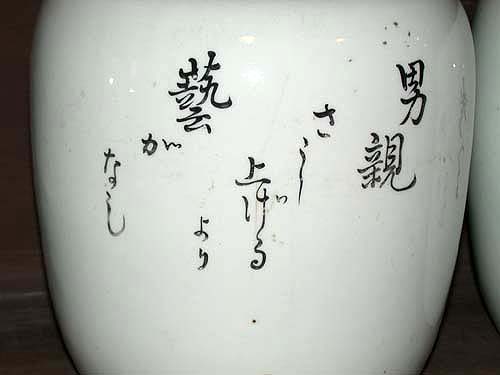 男親
さし
上げる
より
藝
が
なし